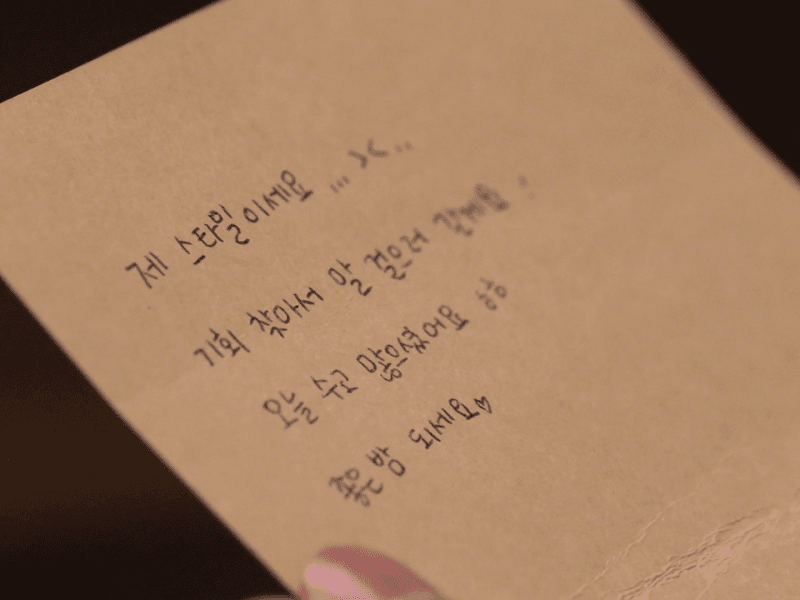 제 스타일이세요 ... >< ..
기회 찾아서 말 걸으러 갈게욥 :
오늘 수고 많으셨어요 ㅎㅎ
좋은 밤 되세요♡